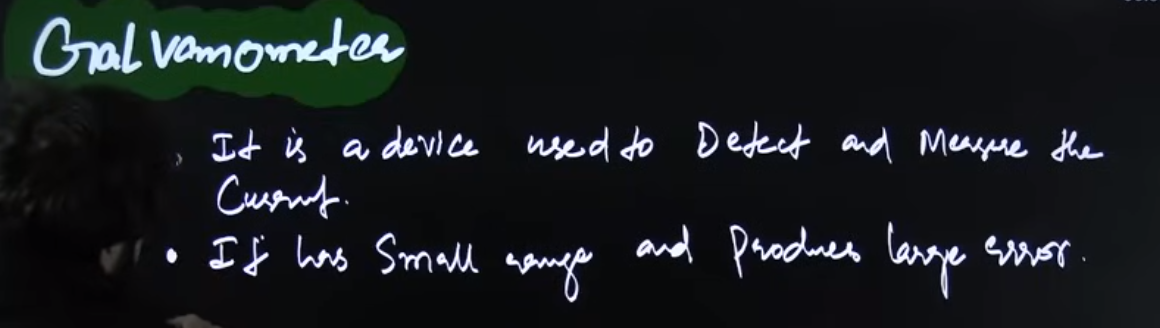 Galvanometer
It is a device used to Detect and Measure the
Current.
• It has Small range and Produces large error.